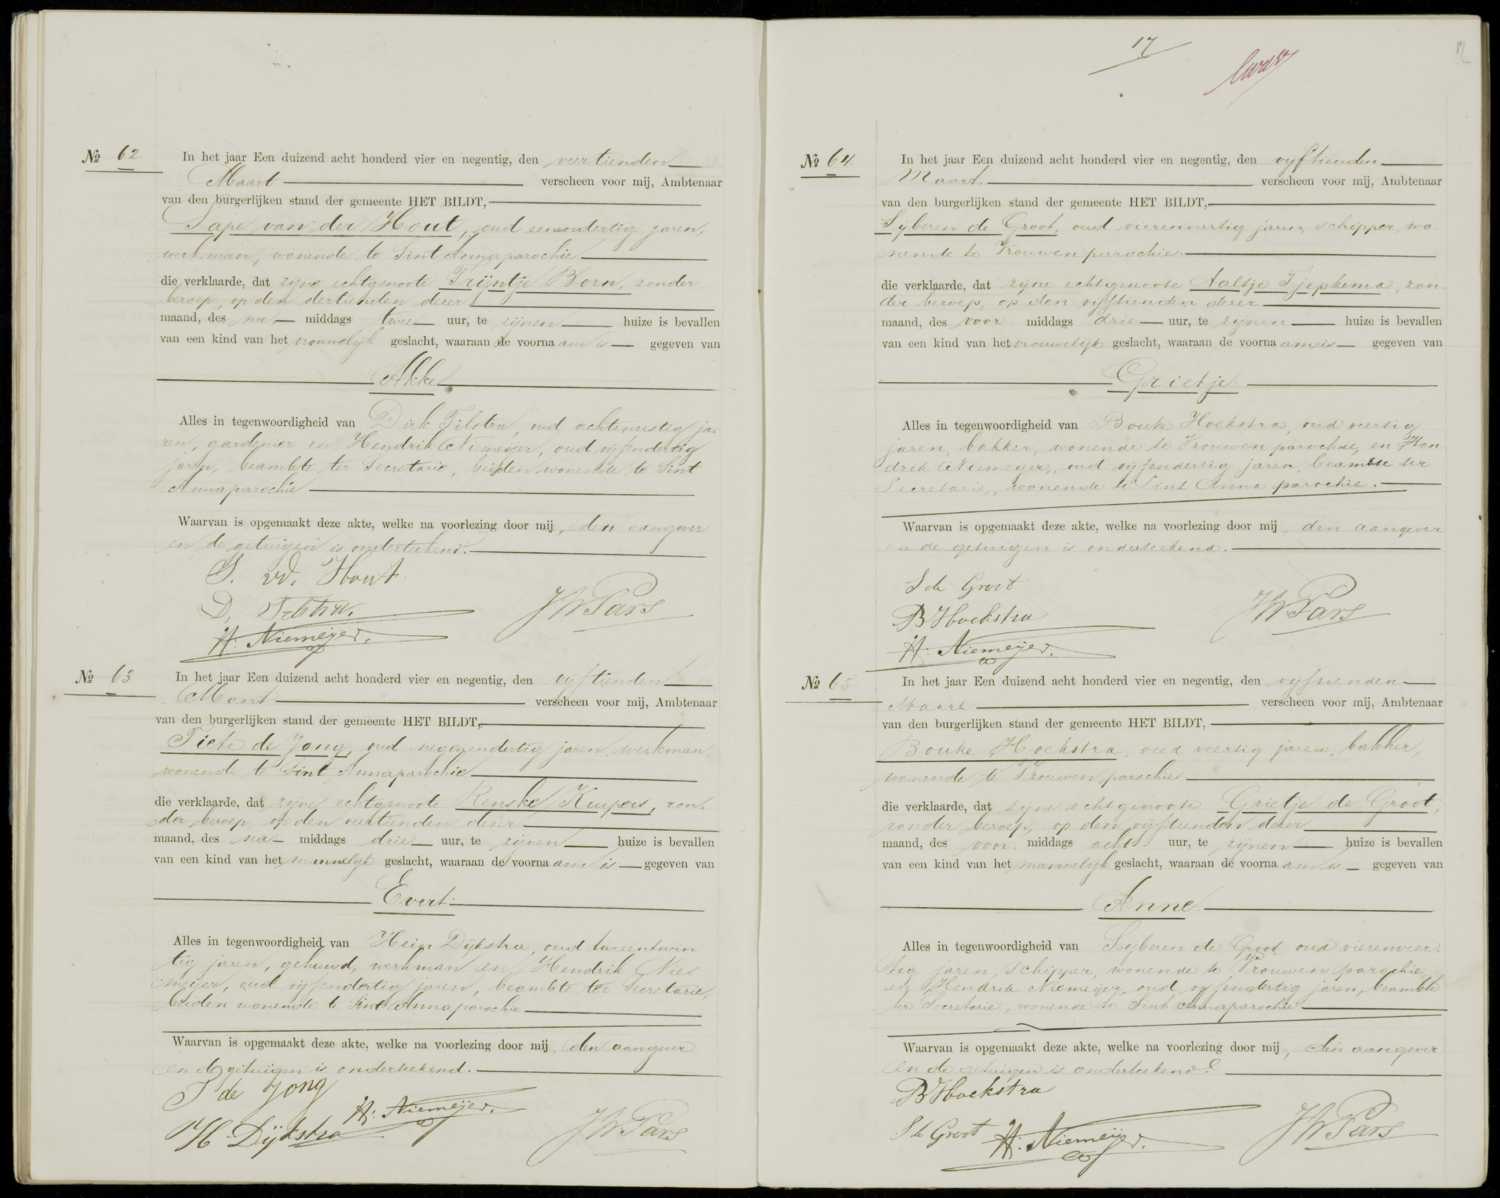 № 62
In het jaar Een duizend acht honderd vier en negentig, den veertienden
Maart verscheen voor mij, Ambtenaar
van den burgerlijken stand der gemeente HET BILDT,
Sape van der Hout, oud eenendertig jaren,
werkman, wonende te Sint Annaparochie
die verklaarde, dat zijne echtgenoote Trijntje Born, zonder
beroep, op den dertienden dezer
maand, des na middags twee uur, te zijnen huize is bevallen
van een kind van het vrouwelijk geslacht, waaraan de voorna am is gegeven van
Akke
Alles in tegenwoordigheid van Dirk, oud achtenzestig ja-
ren, gardenier en Hendrik Niemeijer, oud vijfendertig
jaren, beambte ter Secretarie, beiden wonende te Sint
Annaparochie
Waarvan is opgemaakt deze akte, welke na voorlezing door mij, den aangever
en de getuigen is onderteekend.
S. vd. Hout
D.
H. Niemeijer.
JW Pars
№ 63
In het jaar Een duizend acht honderd vier en negentig, den vijftienden
Maart verscheen voor mij, Ambtenaar
van den burgerlijken stand der gemeente HET BILDT,
Tiete de Jong, oud negenendertig jaren, werkman,
wonende te Sint Annaparochie
die verklaarde, dat zijne echtgenoote Renske Kuipers, zon-
der beroep, op den veertienden dezer
maand, des na middags drie uur, te zijnen huize is bevallen
van een kind van het mannelijk geslacht, waaraan de voorna am is gegeven van
Evert
Alles in tegenwoordigheid van Hein Dijkstra, oud tweeentwin
tig jaren, gehuwd, werkman en Hendrik Nie
meijer, oud vijfendertig jaren, beambte ter Secretarie,
beiden wonende te Sint Annaparochie
Waarvan is opgemaakt deze akte, welke na voorlezing door mij, den aangever
en de getuigen is onderteekend.
T de Jong
H. Niemeijer.
H. Dijkstra
JW Pars
17
№ 64
In het jaar Een duizend acht honderd vier en negentig, den vijftienden
Maart verscheen voor mij, Ambtenaar
van den burgerlijken stand der gemeente HET BILDT,
Sijberen de Groot, oud vierenveertig jaren, schipper, wo-
nende te Vrouwen parochie
die verklaarde, dat zijne echtgenoote Aaltje Tjepkema, zon-
der beroep, op den vijftienden dezer
maand, des voor middags drie uur, te zijnen huize is bevallen
van een kind van het vrouwelijk geslacht, waaraan de voorna am is gegeven van
Grietje
Alles in tegenwoordigheid van Bouke Hoekstra, oud veertig
jaren, bakker, wonende te Vrouwen parochie, en Hen
drik Niemeijer, oud vijfendertig jaren, beambte ter
Secretarie, wonende te Sint Anna parochie.
Waarvan is opgemaakt deze akte, welke na voorlezing door mij den aangever
en de getuigen is onderteekend.
S de Groot
B Hoekstra
H. Niemeijer.
JW Pars
№ 65
In het jaar Een duizend acht honderd vier en negentig, den vijftienden
Maart verscheen voor mij, Ambtenaar
van den burgerlijken stand der gemeente HET BILDT,
Bouke Hoekstra, oud veertig jaren, bakker,
wonende te Vrouwen parochie
die verklaarde, dat zijne echtgenoote Grietje de Groot,
zonder beroep, op den vijftienden dezer
maand, des voor middags acht uur, te zijnen huize is bevallen
van een kind van het mannelijk geslacht, waaraan de voorna am is gegeven van
Anne
Alles in tegenwoordigheid van Sijberen de Groot oud vierenveer-
tig jaren, schipper, wonende te Vrouwen parochie,
en Hendrik Niemeijer, oud vijfendertig jaren, beambte
ter Secretarie, wonende te Sint Annaparochie
Waarvan is opgemaakt deze akte, welke na voorlezing door mij, den aangever
en de getuigen is onderteekend.
B Hoekstra
S de Groot
H. Niemeijer.
JW Pars